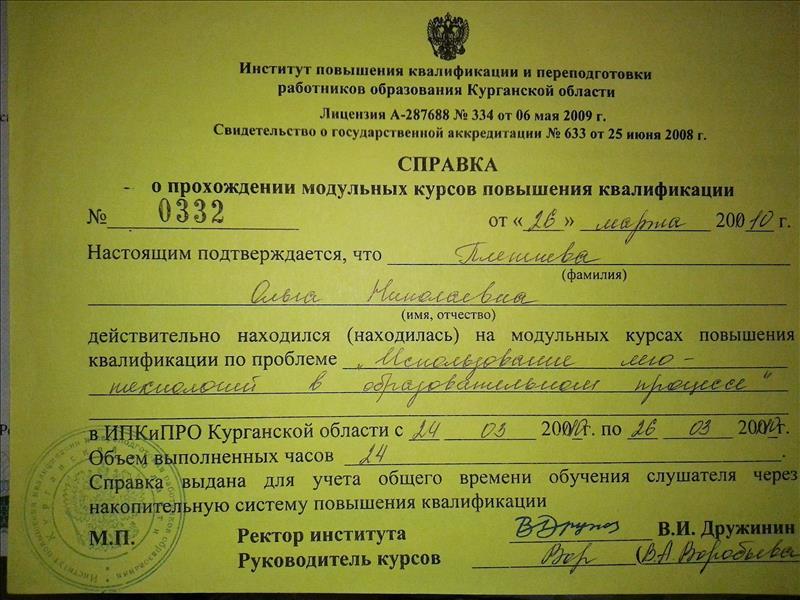 Институт повышения квалификации и переподготовки
работников образования Курганской области
Лицензия А-287688 № 334 от 06 мая 2009 г.
Свидетельство о государственной аккредитации № 633 от 25 июня 2008 г.
СПРАВКА
о прохождении модульных курсов повышения квалификации
№ 0332 от « 26 » марта 20010 г.
Настоящим подтверждается, что Плетнева
(фамилия)
Ольга Николаевна
(имя, отчество)
действительно находился (находилась) на модульных курсах повышения
квалификации по проблеме „Использование лего-
технологий в образовательном процессе“
в ИПКиПРО Курганской области с 24 03 20010г. по 26 03 20010г.
Объем выполненных часов 24.
Справка выдана для учета общего времени обучения слушателя через
накопительную систему повышения квалификации
М.П. Ректор института В.И. Дружинин
Руководитель курсов Вор (В.А. Воробьева